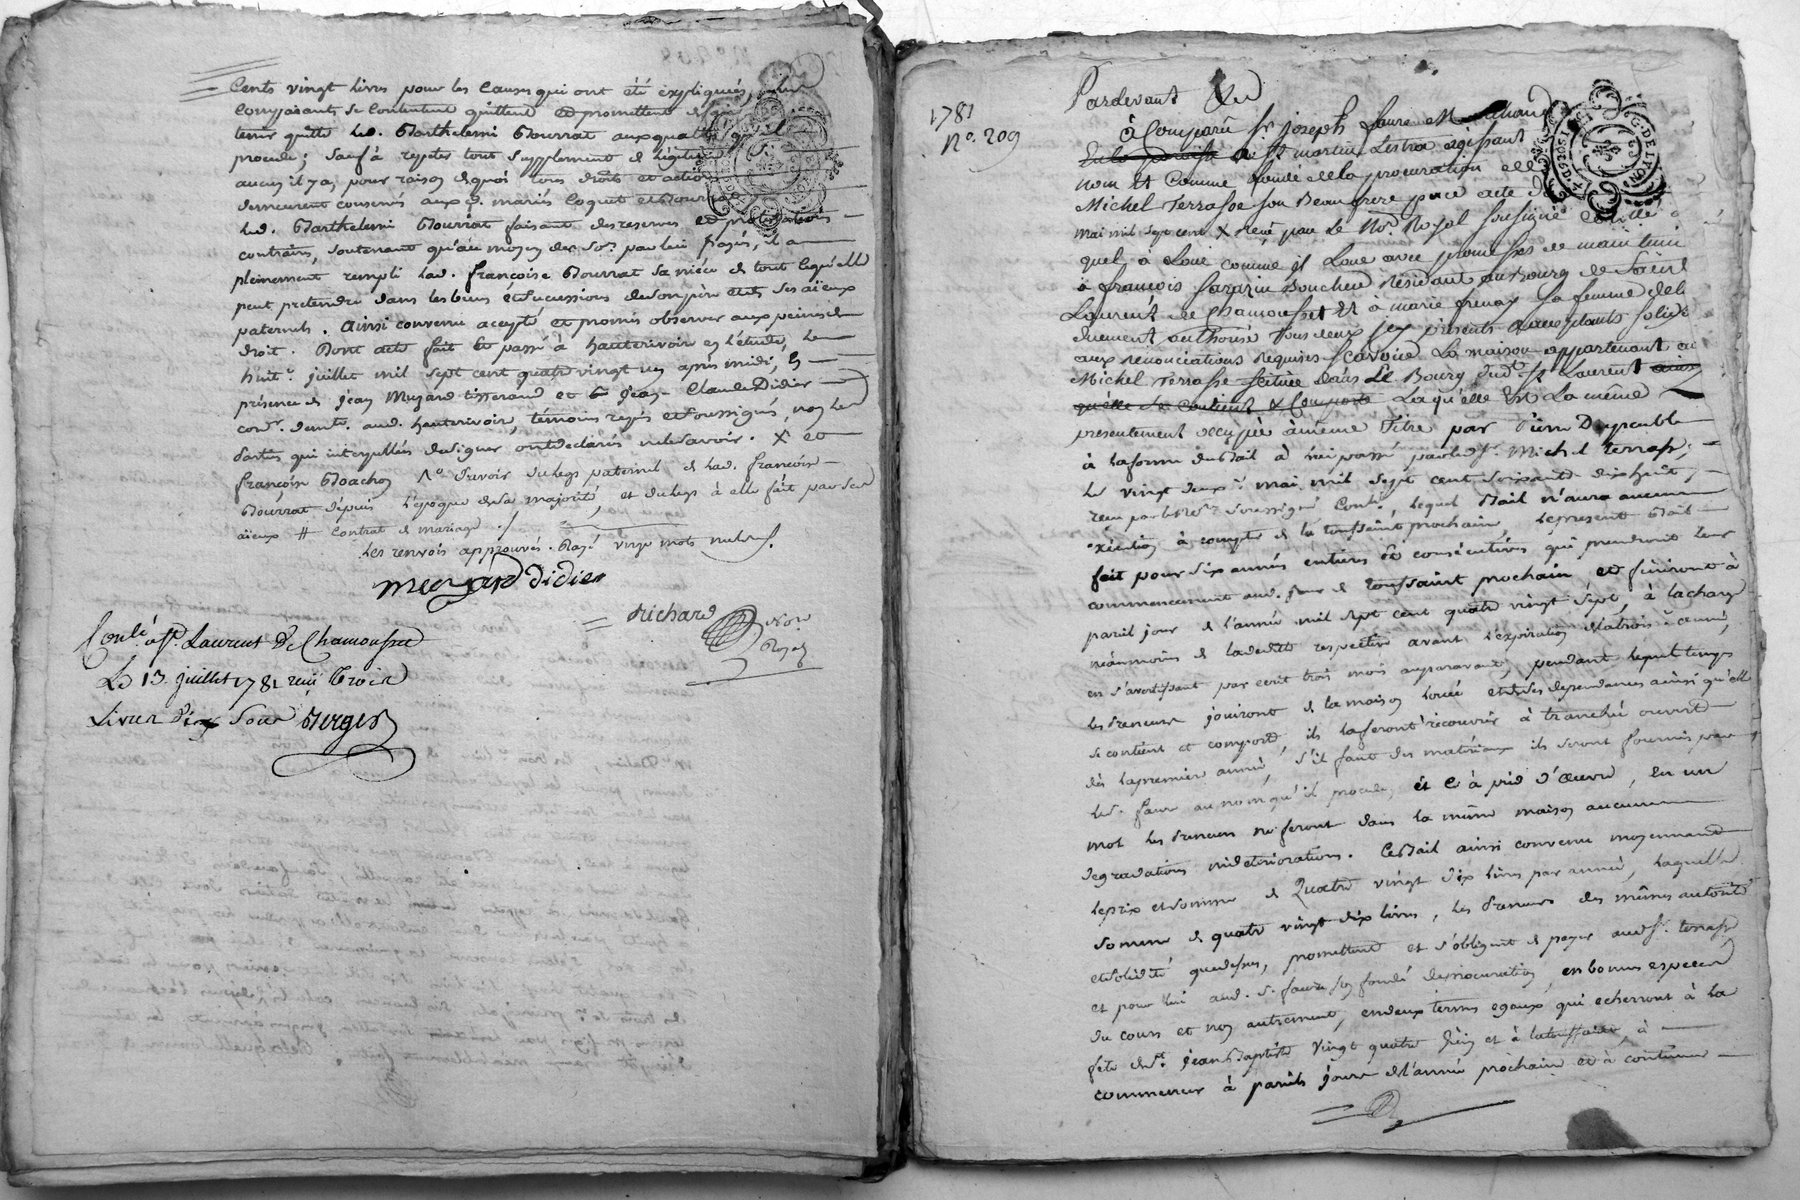 Cents vingt livres pour les Causes qui ont été expliquées,
Composants se Contentent quittent et promettent
tenir quitte led. Barthelemi Bourrat auxqualités qu'il
procede; sauf à repeter tout supplement de légitime
aucun il y a, pour raison dequoi tous droits et actions
demeurent conservés auxd. mariés Coquet et Bourrat
led. Barthelemi Bourrat faisant des reserves et protestations
contraires, soutenant qu'au moyen des so.es par lui payés, il a
pleinement rempli lad. françoise Bourrat sa niéce de tout cequ'elle
peut pretendre dans les biens et successions de son père et de ses aïeux
paternels. Ainsi convenu accepté et promis observer aux peines de
droit. Dont acte fait et passé à hauterivoir en l'étude, le
huit.e juillet mil sept cent quatre vingt un après midi, En
présence de jean Muzard tisserand et de jean-Claude Didier
cord.r demt. aud. hauterivoir, témoins requis et soussignés, non les
parties qui interpellées designer ont declaré ne le savoir. X et
françoise Boachon 1° devoir du legs paternel de lad. françoise
Bourrat depuis l'époque de sa majorité, et du legs à elle fait par ses
aïeux # contrat de mariage ./.
Les renvois approuvés. Rayé vingt mots nuls.
Meuzard Didier
Richard Not.re
Royal
Conlé à St. Laurent De Chamousset
Le 13 juillet 1781 reçu Trois
Livres dix sous Berger
1781
N°. 209
Pardevant &ca
à Comparu Sr. joseph faure Marchand
de la paroisse de St martin Lestra agissant
nom et Comme fondé de la procuration de
Michel Terrasse son Beaufrere par acte
mai mil sept cent X reçu par le No.re Royal soussigné
quel a Loué comme il Loue avec promesses de maintenir
à françois Sarazin Boucher Résidant au Bourg de Saint
Laurent de Chamousset et à marie frenay sa femme de lui
duement authorisé tous deux icy présents acceptants solid.t
aux renonciations Requises Scavoir La maison appartenant au
Michel Terrasse scituée dans Le Bourg dud.t St Laurent ainsi
qu'elle se Contient & Comporte Laqu'elle Est La même
présentement occupée à même titre par Pierre Dupeuble
à la forme du Bail à lui passé par led. sr. Michel terrasse,
le vingt deux.e mai mil sept cent soixante dixhuit,
reçu par le No.re soussigné Conlé, lequel Bail n'aura aucune
exécution à compter de la toussaint prochain, le present Bail
fait pour six années entieres et consécutives qui prendront leur
commencement aud. jour de toussaint prochain et finiront à
pareil jour de l'année mil sept cent quatre vingt sept, à la charge
néanmoins de la dedite respective avant l'expiration de la troisième année,
en s'avertissant par ecrit trois mois auparavant, pendant lequel temps
les preneurs jouiront de la maison louée et de ses dependances ainsi qu'elle
se contient et comporte, ils la feront recouvrir à tranchée ouverte
dès la premiere année, s'il faut des matériaux ils seront fournis par
led. faure au nom qu'il procede, et ce à pied d'œuvre, En un
mot les preneurs ne feront dans la même maison aucunes
degradations ni deteriorations. Ce Bail ainsi convenu moyennant
le prix et somme de Quatre vingt dix livres par année, laquelle
somme de quatre vingt dix livres, les preneurs des mêmes autorité
et solidité que dessus, promettent et s'obligent de payer aud. sr. terrasse
et pour lui aud. s. faure son fondé de procuration en bonnes especes
du cours et non autrement, en deux termes egaux qui echerront à la
fête de St. jean Baptiste vingt quatre juin et à la toussaint, à
commencer à pareils jours de l'année prochaine et à continuer